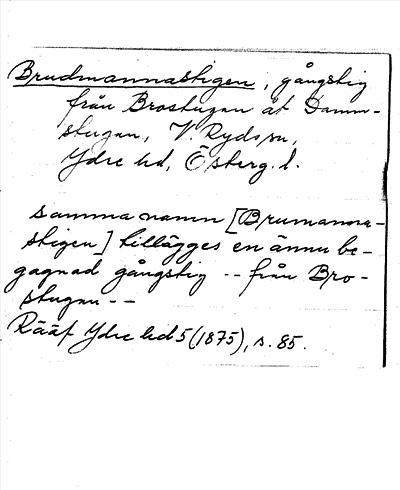 Brudmannastigen, gångstig
från Brostugan åt Damm-
stugan, V. Ryds sn,
Ydre hd, Österg. l.
samma namn [Brumanna-
stigen] tillägges en ännu be-
gagnad gångstig -- från Bro-
stugan --
Rääf Ydre hd 5 (1875), s. 85.